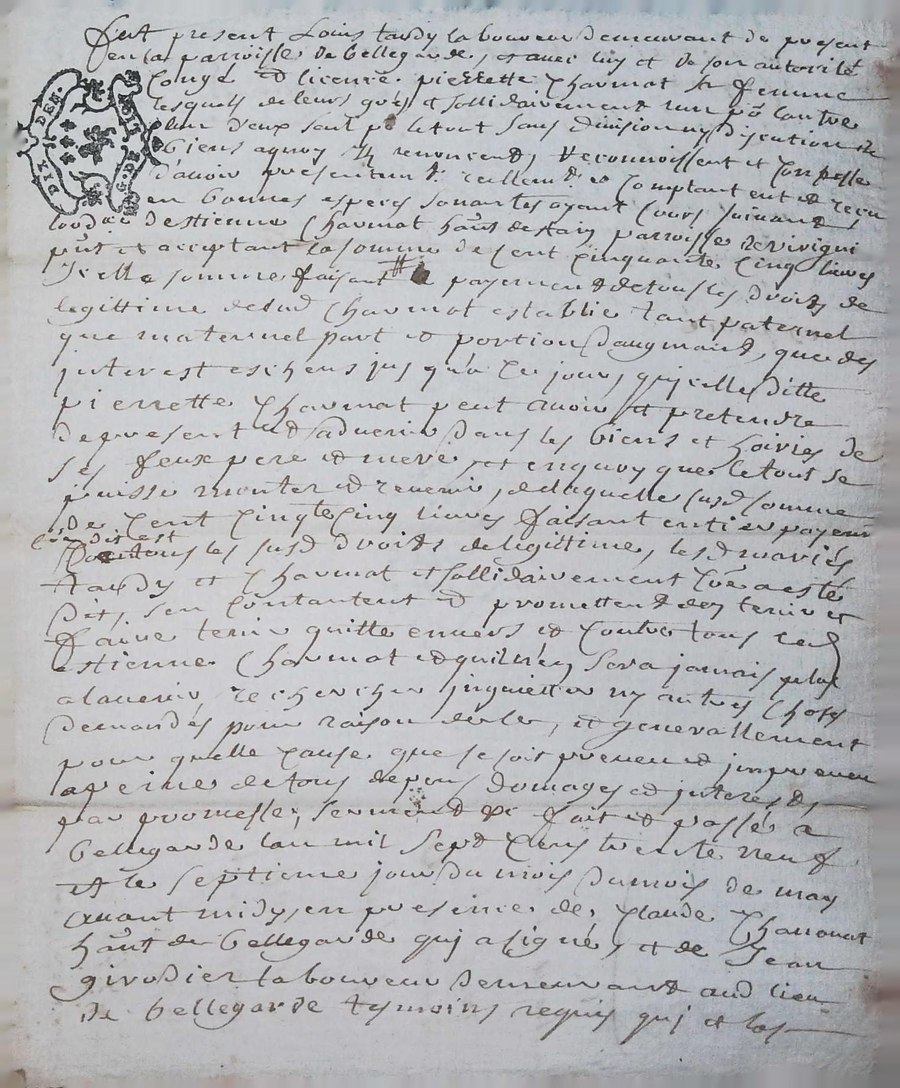 fut present Louis tardy laboureur demeurant de present
en la parroisse de bellegarde, et avec luy et de son autorité
Congé et licence pierrette Charmat sa femme
lesquels de leurs grés et sollidairement l'un pr lautre
lun d'eux seul pr le tout sans division ny discution de
DIX DEN. G. DE LION
biens aquoy ils renoncent, reconnoissent et Confesse
d'avoir presentemt reellemt et Comptant eut et reçu
en bonnes especes sonantes ayant Cours suivant
lord. d'estienne Charmat hant destain parroisse revirigni
pnt et acceptant la somme de Cent Cinquante Cinq livres
Icelle somme faisant le payement de tous les droits de
legittime de lad Charmat establie tant paternel
que maternel part et portion d'augmant, que des
interest eschens jusqu'a Ce jour, qui celle ditte
pierrette Charmat peut avoir et pretendre
de present et a advenir dans les biens et hoiries de
ses feux pere et mere, et en quoy que le tout se
puisse monter et revenir, de laquelle susd somme
de Cent Cinqte Cinq livres faisant entier payemt
Comme dit est
de tous les susd droits de legittime, les d mariés
tardy et Charmat et sollidairement Coe a esté
Dit, s'en Contantent et promettent d'en tenir et
faire tenir quitte envers et Contre tous led
estienne Charmat et quil n'en sera jamais plus
alavenir rechercher inquietter ny autres Choses
demandés pour raison de le, et generallement
pour quelle Cause que se soit preveu et impreveu
a peine de tous depens domages et interests,
par promesse, serment &c fait et passé a
bellegarde lan mil sept Cens trente neuf
et le septieme jour du mois du mois de may
avant midy, en presence de, Claude Chanavat
hant de bellegarde qui a signé, et de Jean
girodier laboureur demeurant aud lieu
de bellegarde tesmoins requis qui et las